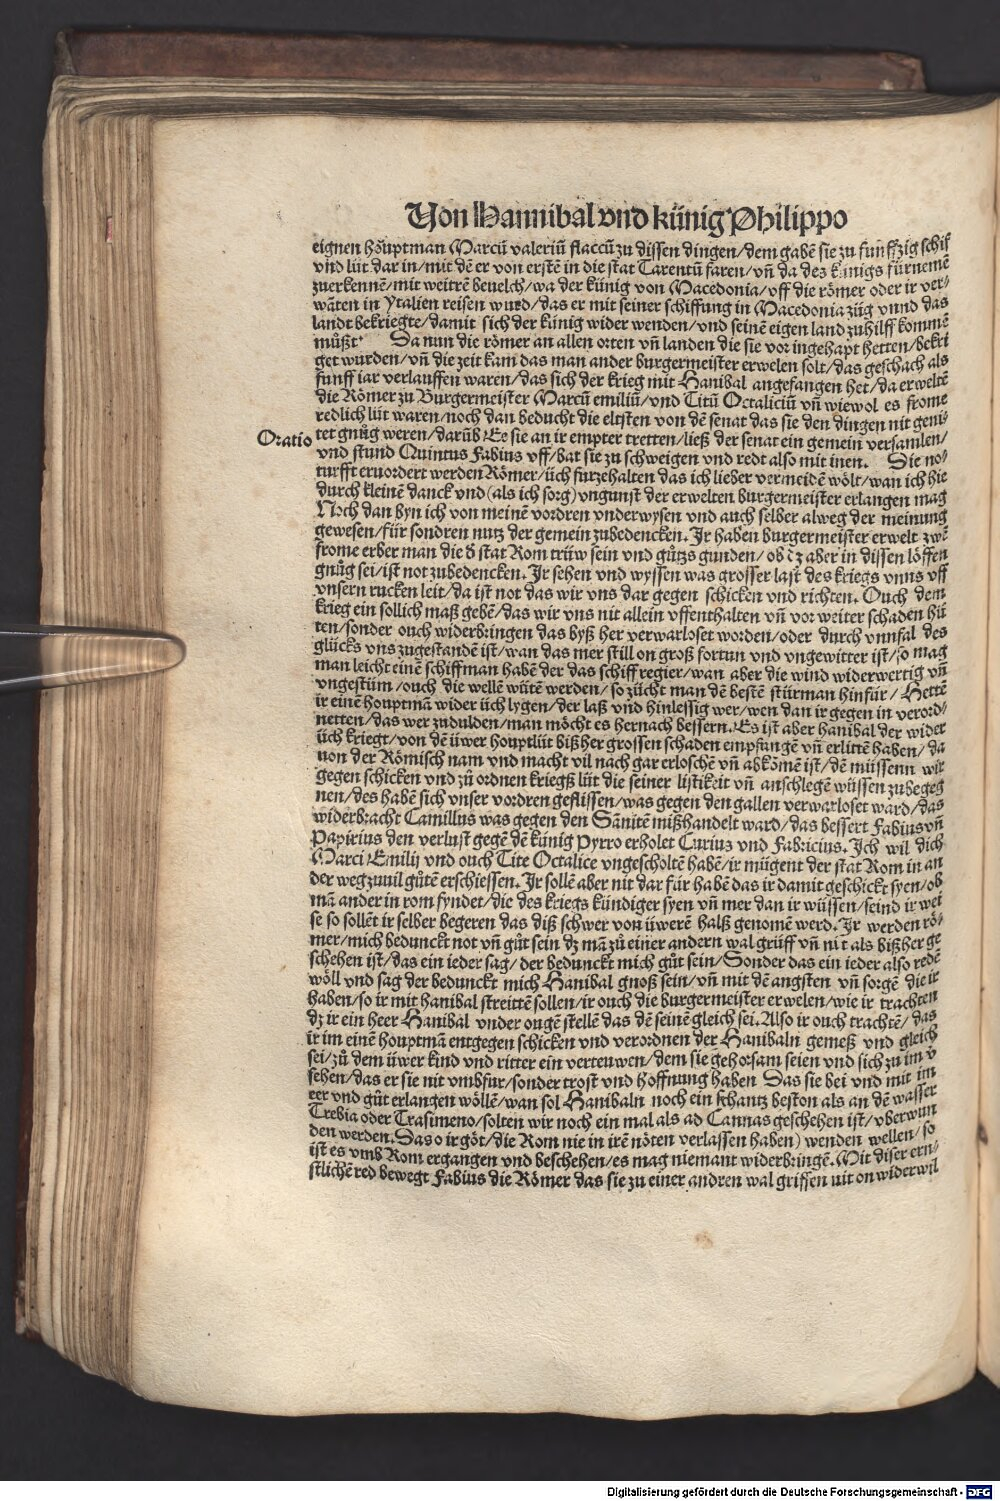 Von Hannibal vnd künig Philippo
eignen höuptman Marcū valeriū flaccū zu dissen dingen/dem gabē sie zu funffzig schif
vnd lüt dar in/mit dē er von erstē in die stat Tarentū faren/vñ da des künigs fürnemē
zuerkennē/mit weitrē beuelch/wa der künig von Macedonia/vff die römer oder ir ver-
wāten in Ytalien reisen wurd/das er mit seiner schiffung in Macedonia züg vnnd das
landt bekriegte/damit sich der künig wider wenden/vnd seinē eigen land zuhilff kommē
můßt. Da nun die römer an allen orten vñ landen die sie vor ingehapt hetten/bekri
get wurden/vñ die zeit kam das man ander burgermeister erwelen solt/das geschach als
funff iar verlauffen waren/das sich der krieg mit Hanibal angefangen het/da erweltē
die Römer zu Burgermeister Marcū emiliū/vnd Titū Octaliciū vñ wiewol es frome
redlich lüt waren/noch dan beducht die eltsten von dē senat das sie den dingen nit geni-
Oratio tet gnůg weren/darūb Ee sie an ir empter tretten/ließ der senat ein gemein versamlen/
vnd stund Quintus Fabius vff/bat sie zu schweigen vnd redt also mit inen. Die no-
turfft eruordert werden Römer/üch furzehalten das ich lieber vermeidē wölt/wan ich hie
durch kleinē danck vnd (als ich sorg) vngunst der erwelten burgermeister erlangen mag
Noch dan byn ich von meinē vordren vnderwysen vnd auch selber alweg der meinung
gewesen/für sondren nutz der gemein zubedencken. Ir haben burgermeister erwelt zwē
frome erber man die d̄ stat Rom trüw sein vnd gůtzs gunden/ob dz aber in dissen löffen
gnůg sei/ist not zubedencken. Ir sehen vnd wyssen was grosser last des kriegs vnns vff
vnsern rucken leit/da ist not das wir vns dar gegen schicken vnd richten. Ouch dem
krieg ein sollich maß gebē/das wir vns nit allein vffenthalten vñ vor weiter schaden hü
ten/sonder ouch widerbringen das byß her verwarloset worden/oder durch vnnfal des
glücks vns zugestandē ist/wan das mer still on groß fortun vnd vngewitter ist/so mag
man leicht einē schiffman habē der das schiff regier/wan aber die wind widerwertig vñ
vngestüm/ouch die wellē wütē werden/so zücht man dē bestē stürman hinfür/Hettē
ir einē houptmā wider üch lygen/der laß vnd hinlessig wer/wen dan ir gegen in verord-
netten/das wer zudulden/man möcht es hernach bessern. Es ist aber hanibal der wider
üch kriegt/von dē üwer houptlüt bißher grossen schaden empfangē vñ erlittē haben/da
uon der Römisch nam vnd macht vil nach gar erloschē vñ abkōmē ist/dē müssenn wir
gegen schicken vnd zů ordnen kriegß lüt die seiner listikeit vñ anschlegē wüssen zubegeg
nen/des habē sich vnser vordren geflissen/was gegen den gallen verwarloset ward/das
widerbracht Camillus was gegen den Sānitē mißhandelt ward/das bessert Fabius vñ
Papirius den verlust gegē dē künig Pyrro erholet Curius vnd Fabricius. Ich wil dich
Marci Emilij vnd ouch Tite Octalice vngescholtē habē/ir mügent der stat Rom in an
der weg zuuil gůtē erschiessen. Ir sollē aber nit dar für habē das ir damit geschickt syen/ob
mā ander in rom fyndet/die des kriegs kündiger syen vñ mer dan ir wüssen/seind ir wei
se so sollēt ir selber begeren das diß schwer von üwerē halß genomē werd. Ir werden rö-
mer/mich bedunckt not vñ gůt sein dz mā zů einer andern wal griff vñ nit als bißher ge
schehen ist/das ein ieder sag/der bedunckt mich gůt sein/Sonder das ein ieder also redē
wöll vnd sag der bedunckt mich Hanibal gnoß sein/vñ mit dē angsten vñ sorgē die ir
haben/so ir mit hanibal streittē sollen/ir ouch die burgermeister erwelen/wie ir trachten
dz ir ein heer Hanibal vnder ougē stellē das dē seinē gleich sei. Also ir ouch trachtē/das
ir im einē houptmā entgegen schicken vnd verordnen der Hanibaln gemeß vnd gleich
sei/zů dem üwer kind vnd ritter ein vertruwen/dem sie gehorsam seien vnd sich zu im v̄
sehen/das er sie nit vmbfur/sonder trost vnd hoffnung haben Das sie bei vnd mit im
eer vnd gůt erlangen wöllē/wan sol Hanibaln noch ein schantz beston als an dē wasser
Trebia oder Trasimeno/solten wir noch ein mal als ad Cannas geschehen ist/vberwun
den werden. Das o ir göt/die Rom nie in irē nöten verlassen haben) wenden wellen/so
ist es vmb Rom ergangen vnd beschehen/es mag niemant widerbringē. Mit diser ern-
stlichē red bewegt Fabius die Römer das sie zu einer andren wal griffen nit on widerwil
Digitalisierung gefördert durch die Deutsche Forschungsgemeinschaft - DFG